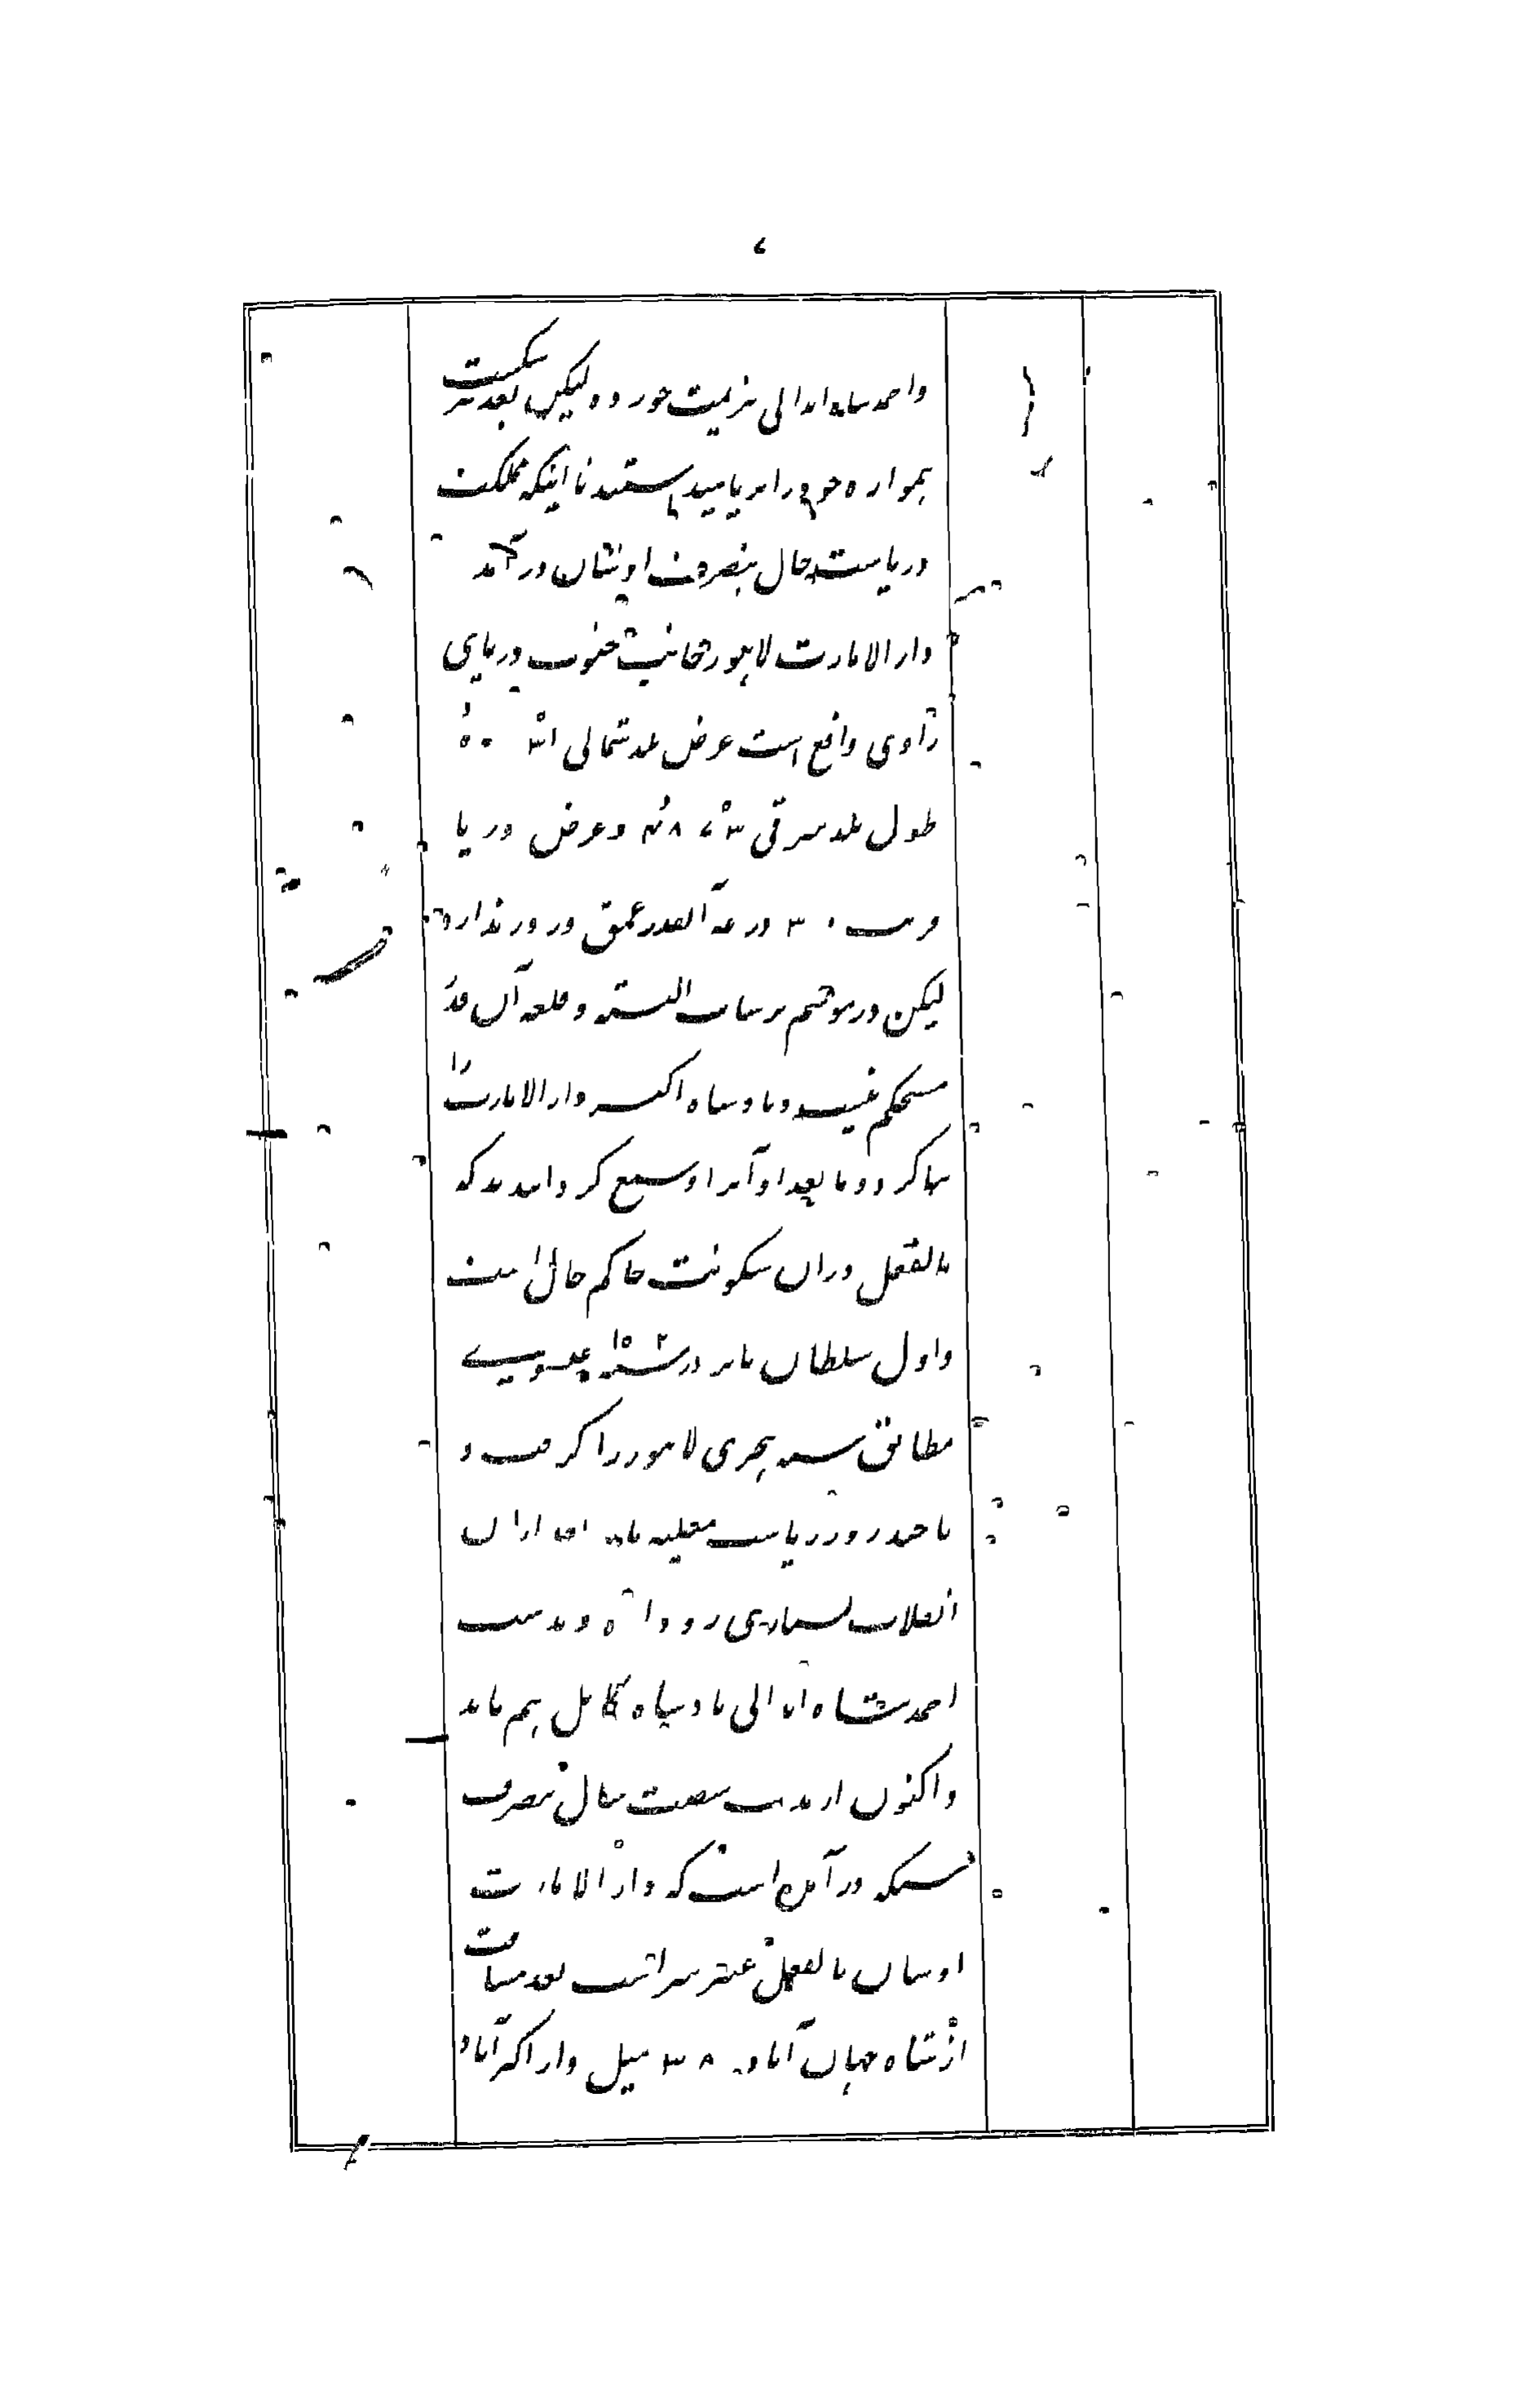 ۷
واحمد شاه ابدالی هزیمت خورده لیکن بعد هر شکست
همواره خود را بریاست تا اینکه مملکت
و ریاست حال بتصرف اوشان درآمد
دارالامارت لاهور جانب جنوب دریای
راوی واقع است عرض بلد شمالی ۳۱ ۵۰
طول بلد شرقی ۷۳ ۴۸ و عرض دریا
قریب ۳۰۰ درعه آنقدر عمق و زور ندارد
لیکن در موسم برسات البته و قلعه آن قدر
مستحکم نیست و بادشاه اکبر دارالامارت را
بنا کرد و مابعد او آنرا وسیع گردانیدند که
بالفعل دران سکونت حاکم حال است
و اول سلطان بابر در سنه ۱۵۲ عیسوی
مطابق سنه هجری لاهور را گرفت و
تا چند روز ریاست مغلیه ماند بعد ازان
انقلاب بسیاری رو داده و بدست
احمد شاه ابدالی بادشاه کابل هم ماند
و اکنون از مدت شصت سال بتصرف
سکهه درآمده است که دارالامارت
اوشان بالفعل عنبرسر است بعد مسافت
از شاه جهان آباد ۳۸۰ میل و از اکبرآباد